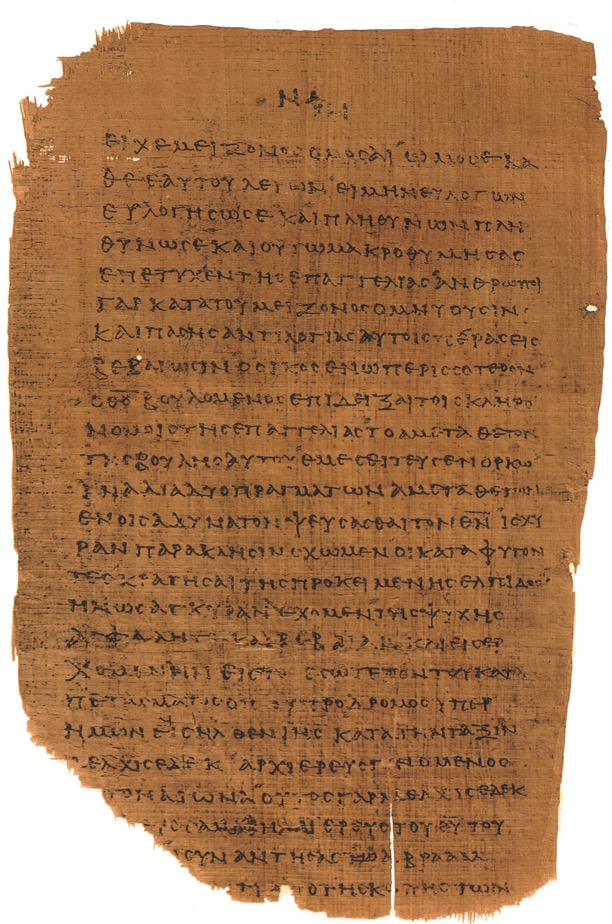 ειχεμειζονοϲομοϲαιωμοϲεκα
θεεαυτουλεγωνειμηνευλογων
ευλογηϲωϲεκαιπληθυνωνπλη
θυνωϲεκαιουτωμακροθυμηϲαϲ
επετυχεντηϲεπαγγελιαϲανθρωποι
γαρκατατουμειζονοϲομνυουϲιν
καιπαϲηϲαντιλογιαϲαυτοιϲπεραϲειϲ
βεβαιωϲινοορκοϲενωπεριϲϲοτερον
οθϲβουλομενοϲεπιδειξαιτοιϲκληρο
νομοιϲτηϲεπαγγελιαϲτοαμεταθετον
τηϲβουληϲαυτουεμεϲειτευϲενορκω
ιναδιαδυοπραγματωναμεταθετων
ενοιϲαδυνατονψευϲαϲθαιτονθνιϲχυ
ρανπαρακληϲινεχωμενοικαταφυγον
τεϲκρατηϲαιτηϲπροκειμενηϲελπιδοϲ
ηνωϲαγκυρανεχομεντηϲψυχηϲ
αϲφαληκαιβεβαιανκαιειϲερ
χομενηνειϲτοεϲωτεροντουκατα
πεταϲματοϲοπουπροδρομοϲυπερ
ημωνειϲηλθενιηϲκατατηνταξιν
μελχιϲεδεκαρχιερευϲγενομενοϲ
τοναιωναουτοϲγαρομελχιϲεδεκ
ιερευϲτουθυτου
ϲυναντηϲαϲαβρααμ
τιαποτηϲκοπηϲτων